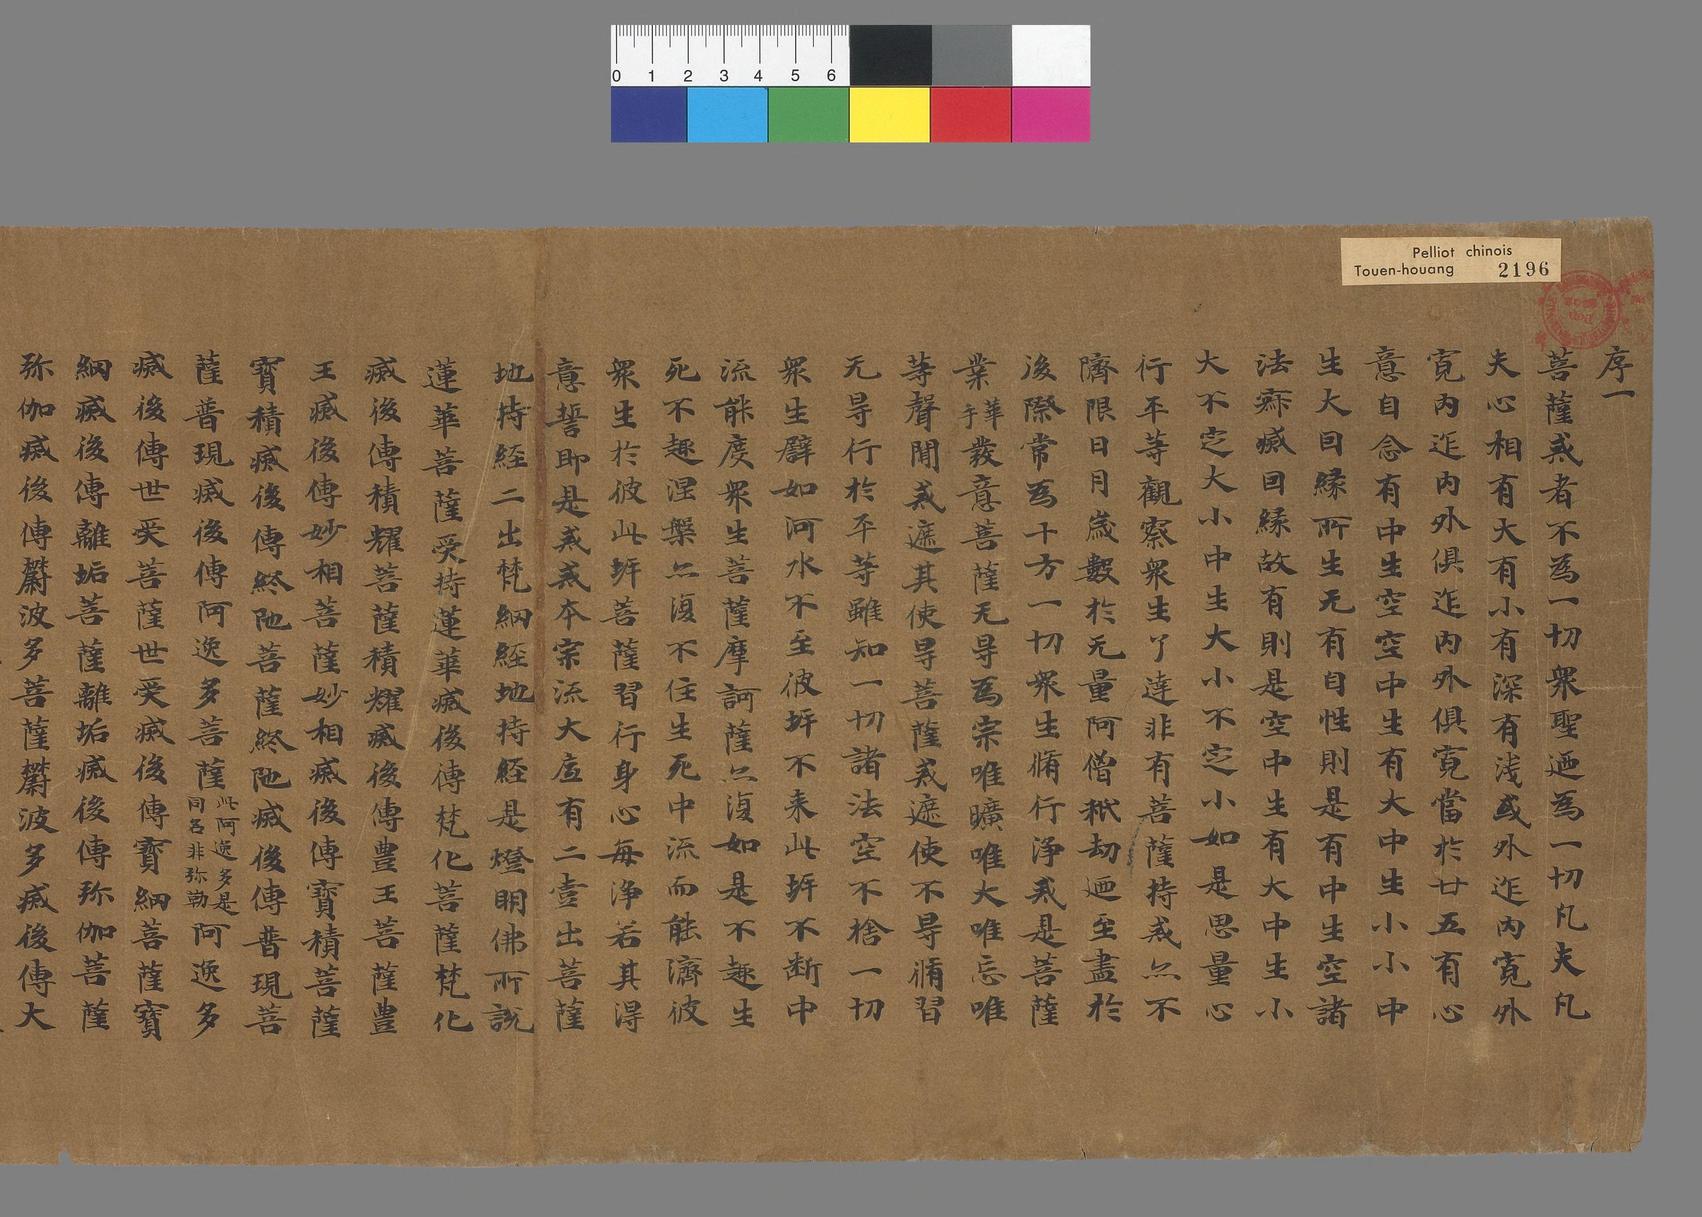 Pelliot chinois
Touen-houang 2196
0 1 2 3 4 5 6
序一
菩薩戒者不為一切衆聖迺為一切凡夫凡
夫心相有大有小有深有浅或外迮内寛外
寛内迮内外俱迮内外俱寛當於廿五有心
意自念有中生空空中生有大中生小小中
生大因縁所生无有自性則是有中生空諸
法癈感因縁故有則是空中生有大中生小
大不定大小中生大小不定小如是思量心
行平等觀察衆生了達非有菩薩持戒亦不
濟限日月歳數於无量阿僧秖劫迺至盡於
後際常為十方一切衆生脩行浄戒是菩薩
業 華手 義意菩薩无㝵為宗唯曠唯大唯忘唯
等聲聞戒遮其使㝵菩薩戒遮使不㝵脩習
无㝵行於平等雖知一切諸法空不捨一切
衆生譬如河水不至彼岸不来此岸不断中
流能度衆生菩薩摩訶薩亦復如是不趣生
死不趣涅槃亦復不住生死中流而能濟彼
衆生於彼此岸菩薩習行身心毎浄若其得
意誓即是戒戒本宗流大虛有二壹出菩薩
地持経二出梵網経地持経是燈明佛所說
蓮華菩薩受持蓮華蔵後傳梵化菩薩梵化
蔵後傳積耀菩薩積耀蔵後傳豊王菩薩豊
王蔵後傳妙相菩薩妙相蔵後傳寳積菩薩
寳積蔵後傳終陁菩薩終陁蔵後傳普現菩
薩普現蔵後傳阿逸多菩薩 此阿逸多是同名非弥勒 阿逸多
蔵後傳世受菩薩世受蔵後傳寳網菩薩寳
網蔵後傳離垢菩薩離垢蔵後傳弥伽菩薩
弥伽蔵後傳欝波多菩薩欝波多蔵後傳大